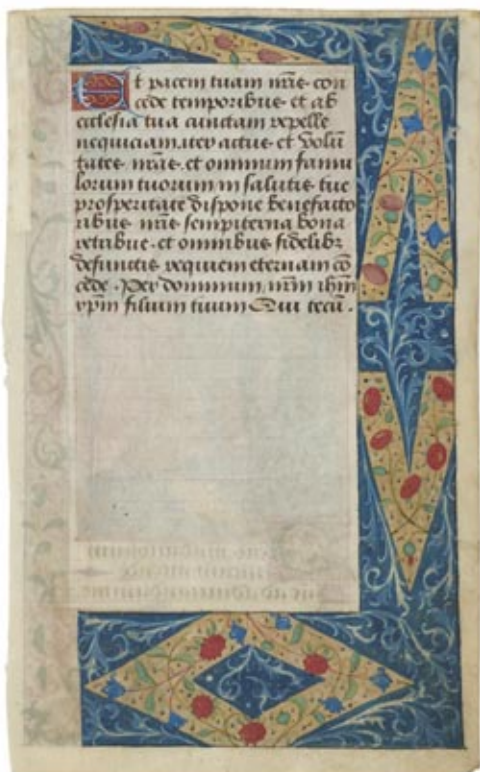 Et pacem tuam nr̄is con
cede temporibus et ab
ecclesia tua cunctam repelle
nequiciam. iter actus et volū
tates nr̄as. et omnium famu
lorum tuorum in salutis tue
prosperitate dispone benefacto
ribus nr̄is sempiterna bona
retribue. et omnibus fidelibꝫ
defunctis requiem eternam cō
cede. Per dominum nr̄m ihm̄
xp̄m filium tuum Qui tecū.